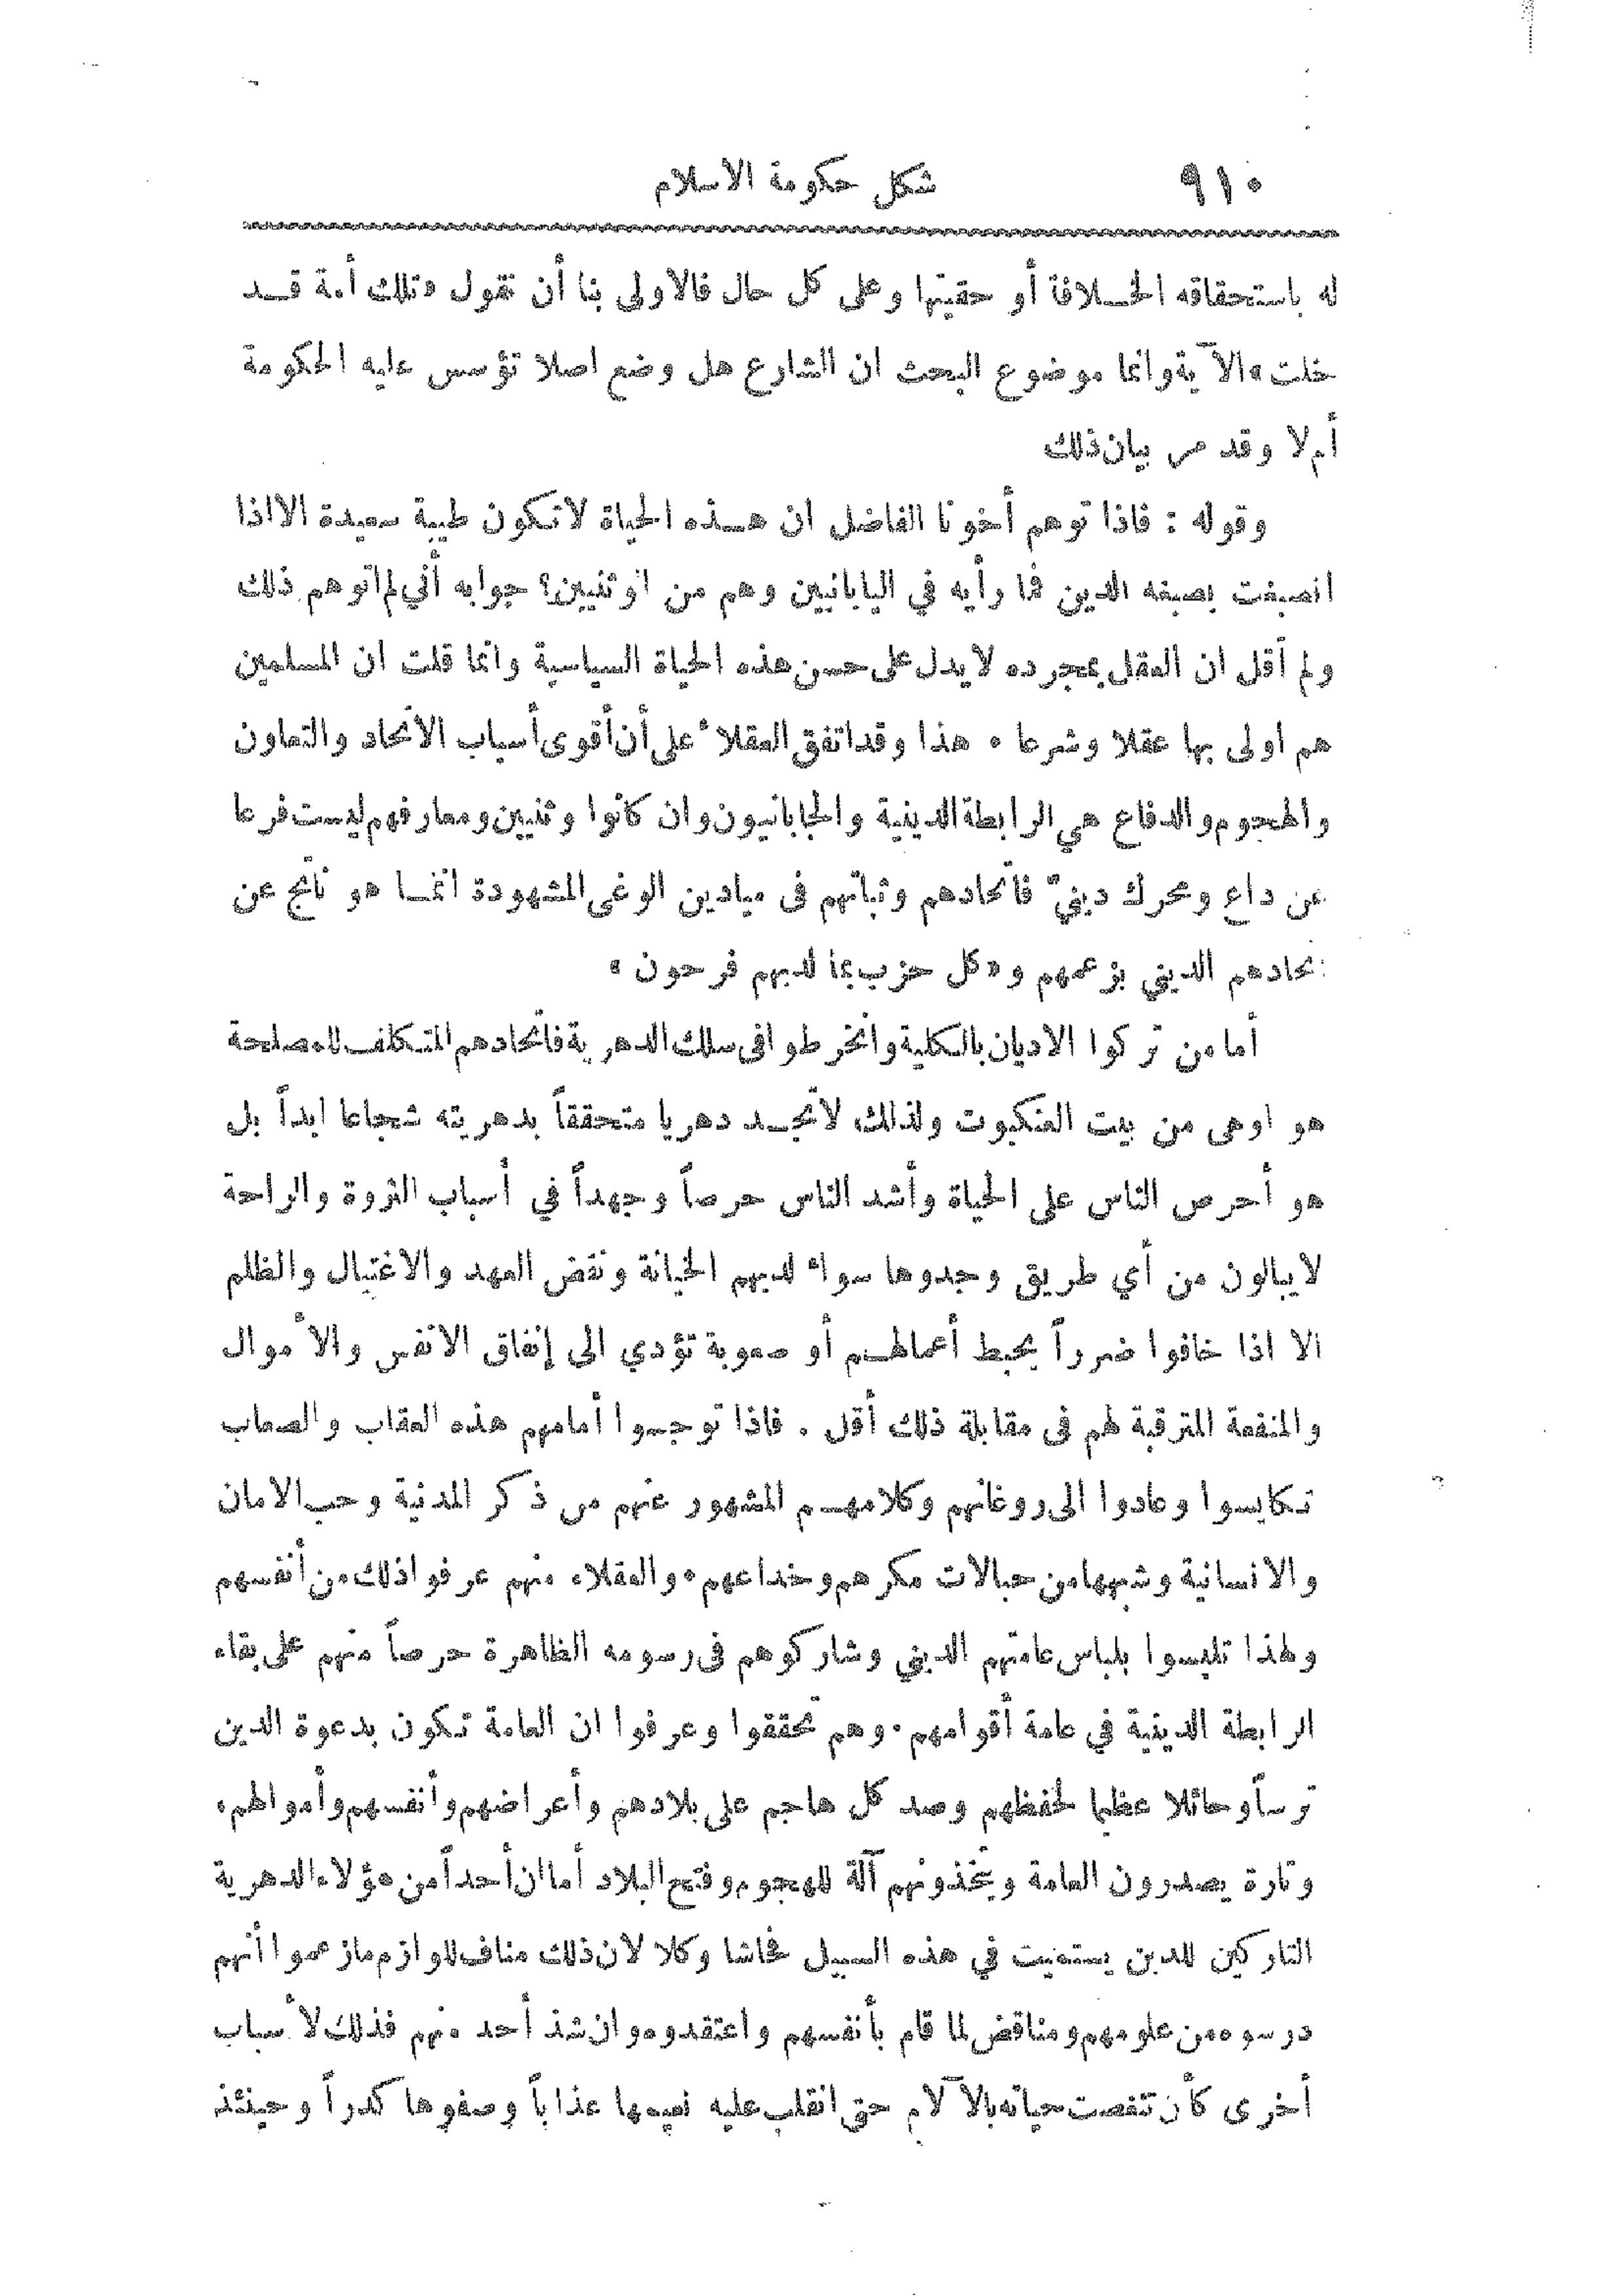 ٩١٠
شكل حكومة الاسلام
له باستحقاقه الخلافة أو حقيتها وعلى كل حال فالاولى بنا أن نقول «تلك أمة قد
خلت» الآية وانما موضوع البحث ان الشارع هل وضع اصلا تؤسس عليه الحكومة
أم لا وقد مر بيان ذلك
وقوله : فاذا توهم أخونا الفاضل ان هذه الحياة لا تكون طيبة سعيدة الا اذا
انصبغت بصبغه الدين فما رأيه في اليابانيين وهم من الوثنيين؟ جوابه أني لم اتوهم ذلك
ولم أقل ان العقل بمجرده لا يدل على حسن هذه الحياة السياسية وانما قلت ان المسلمين
هم اولى بها عقلا وشرعا . هذا وقد اتفق العقلاء على أن أقوى أسباب الاتحاد والتعاون
والهجوم والدفاع هي الرابطة الدينية والجابانيون وان كانوا وثنيين ومعارفهم ليست فرعا
عن داع ومحرك دينيّ فاتحادهم وثباتهم فى ميادين الوغى المشهودة انما هو ناتج عن
اتحادهم الديني بزعمهم و«كل حزب بما لديهم فرحون»
أما من تركوا الاديان بالكلية وانخرطوا فى سلك الدهرية فاتحادهم المتكلف للمصلحة
هو اوهى من بيت العنكبوت ولذلك لا تجد دهريا متحققاً بدهريته شجاعا ابداً بل
هو أحرص الناس على الحياة وأشد الناس حرصاً وجهداً في أسباب الثروة والراحة
لا يبالون من أي طريق وجدوها سواء لديهم الخيانة ونقض العهد والاغتيال والظلم
الا اذا خافوا ضرراً يحبط أعمالهم أو صعوبة تؤدي الى إنفاق الانفس والأموال
والمنفعة المترقبة لهم فى مقابلة ذلك أقل . فاذا توجسوا أمامهم هذه العقاب والصعاب
تكايسوا وعادوا الى روغانهم وكلامهم المشهور عنهم من ذكر المدنية وحب الامان
والانسانية وشبهها من حبالات مكرهم وخداعهم . والعقلاء منهم عرفوا ذلك من أنفسهم
ولهذا تلبسوا بلباس عامتهم الديني وشاركوهم فى رسومه الظاهرة حرصاً منهم على بقاء
الرابطة الدينية في عامة أقوامهم . وهم تحققوا وعرفوا ان العامة تكون بدعوة الدين
ترساً وحائلا عظيما لحفظهم وصد كل هاجم على بلادهم وأعراضهم وأنفسهم وأموالهم،
وتارة يصدرون العامة ويتخذونهم آلة للهجوم وفتح البلاد أما ان أحداً من هؤلاء الدهرية
التاركين للدين يستميت في هذه السبيل فحاشا وكلا لان ذلك مناف للوازم ما زعموا انهم
درسوه من علومهم ومناقض لما قام بأنفسهم واعتقدوه وان شذ أحد منهم فذلك لأسباب
أخرى كأن تنغصت حياته بالآلام حتى انقلب عليه نعيمها عذاباً وصفوها كدراً وحينئذ